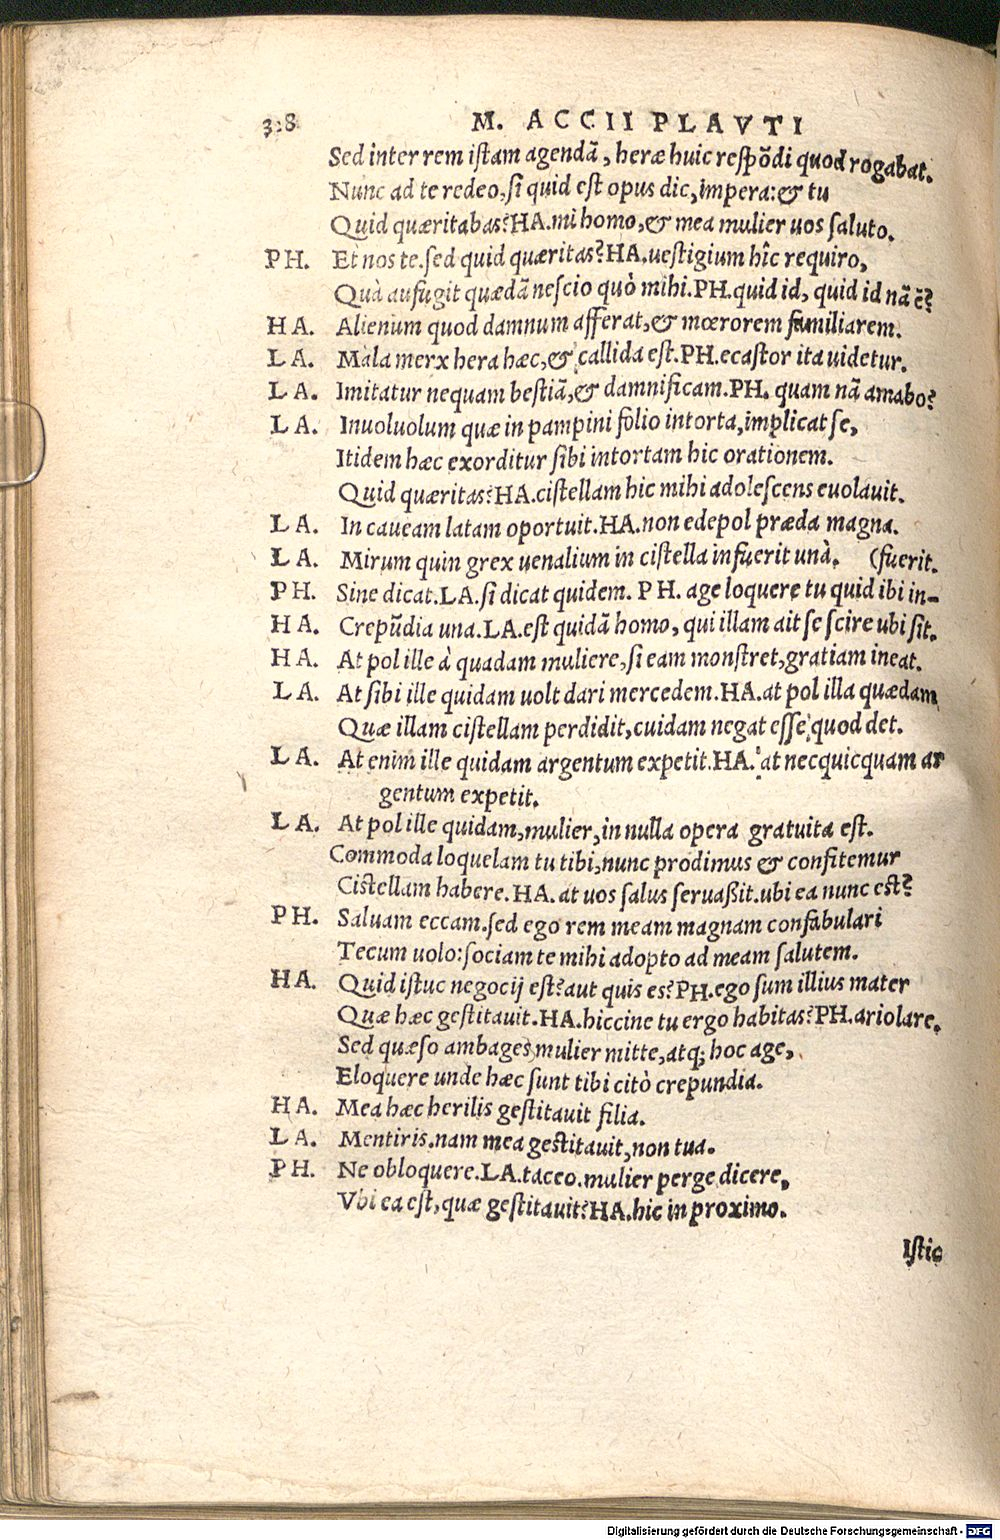 328 M. ACCII PLAVTI
Sed inter rem istam agendã, heræ huic respõdi quod rogabat.
Nunc ad te redeo, si quid est opus dic, impera: & tu
Quid quæritabas? HA. mi homo, & mea mulier uos saluto.
PH. Et nos te. sed quid quæritas? HA. uestigium hîc requiro,
Quà aufugit quædã nescio quò mihi. PH. quid id, quid id nã ẽ?
HA. Alienum quod damnum afferat, & mœrorem familiarem.
LA. Mala merx hera hæc, & callida est. PH. ecastor ita uidetur.
LA. Imitatur nequam bestiã, & damnificam. PH. quam nã amabo?
LA. Inuoluolum quæ in pampini folio intorta, implicat se,
Itidem hæc exorditur sibi intortam hic orationem.
Quid quæritas? HA. cistellam hic mihi adolescens euolauit.
LA. In caueam latam oportuit. HA. non edepol præda magna.
LA. Mirum quin grex uenalium in cistella infuerit unà. (fuerit.
PH. Sine dicat. LA. si dicat quidem. PH. age loquere tu quid ibi in-
HA. Crepũdia una. LA. est quidã homo, qui illam ait se scire ubi sit.
HA. At pol ille à quadam muliere, si eam monstret, gratiam ineat.
LA. At sibi ille quidam uolt dari mercedem. HA. at pol illa quædam
Quæ illam cistellam perdidit, cuidam negat esse quod det.
LA. At enim ille quidam argentum expetit. HA. at necquicquam ar
gentum expetit.
LA. At pol ille quidam, mulier, in nulla opera gratuita est.
Commoda loquelam tu tibi, nunc prodimus & confitemur
Cistellam habere. HA. at uos salus seruaßit. ubi ea nunc est?
PH. Saluam eccam. sed ego rem meam magnam confabulari
Tecum uolo: sociam te mihi adopto ad meam salutem.
HA. Quid istuc negocij est? aut quis es? PH. ego sum illius mater
Quæ hæc gestitauit. HA. hiccine tu ergo habitas? PH. ariolare.
Sed quæso ambages mulier mitte, atq; hoc age,
Eloquere unde hæc sunt tibi citò crepundia.
HA. Mea hæc herilis gestitauit filia.
LA. Mentiris. nam mea gestitauit, non tua.
PH. Ne obloquere. LA. taceo. mulier perge dicere,
Vbi ea est, quæ gestitauit? HA. hic in proximo.
Istic
Digitalisierung gefördert durch die Deutsche Forschungsgemeinschaft - DFG